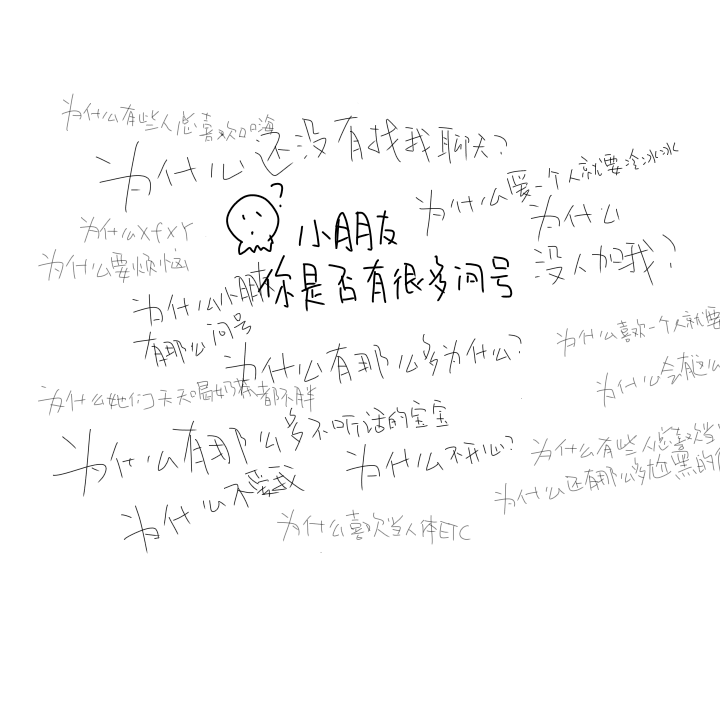 为什么有些人总喜欢口嗨
为什么还没有找我聊天?
为什么爱一个人就要冷冰冰
为什么
没人加我?
为什么xfxy
为什么要烦恼
?
小朋友
你是否有很多问号
为什么小朋友
有那么问号
为什么有那么多为什么?
为什么喜欢一个人就要
为什么会有这么
为什么她们天天喝奶茶都不胖
为什么有那么多不听话的宝宝
为什么不开心?
为什么有些人总喜欢当
为什么还有那么多尬黑的
为什么不爱我
为什么喜欢当人体ETC